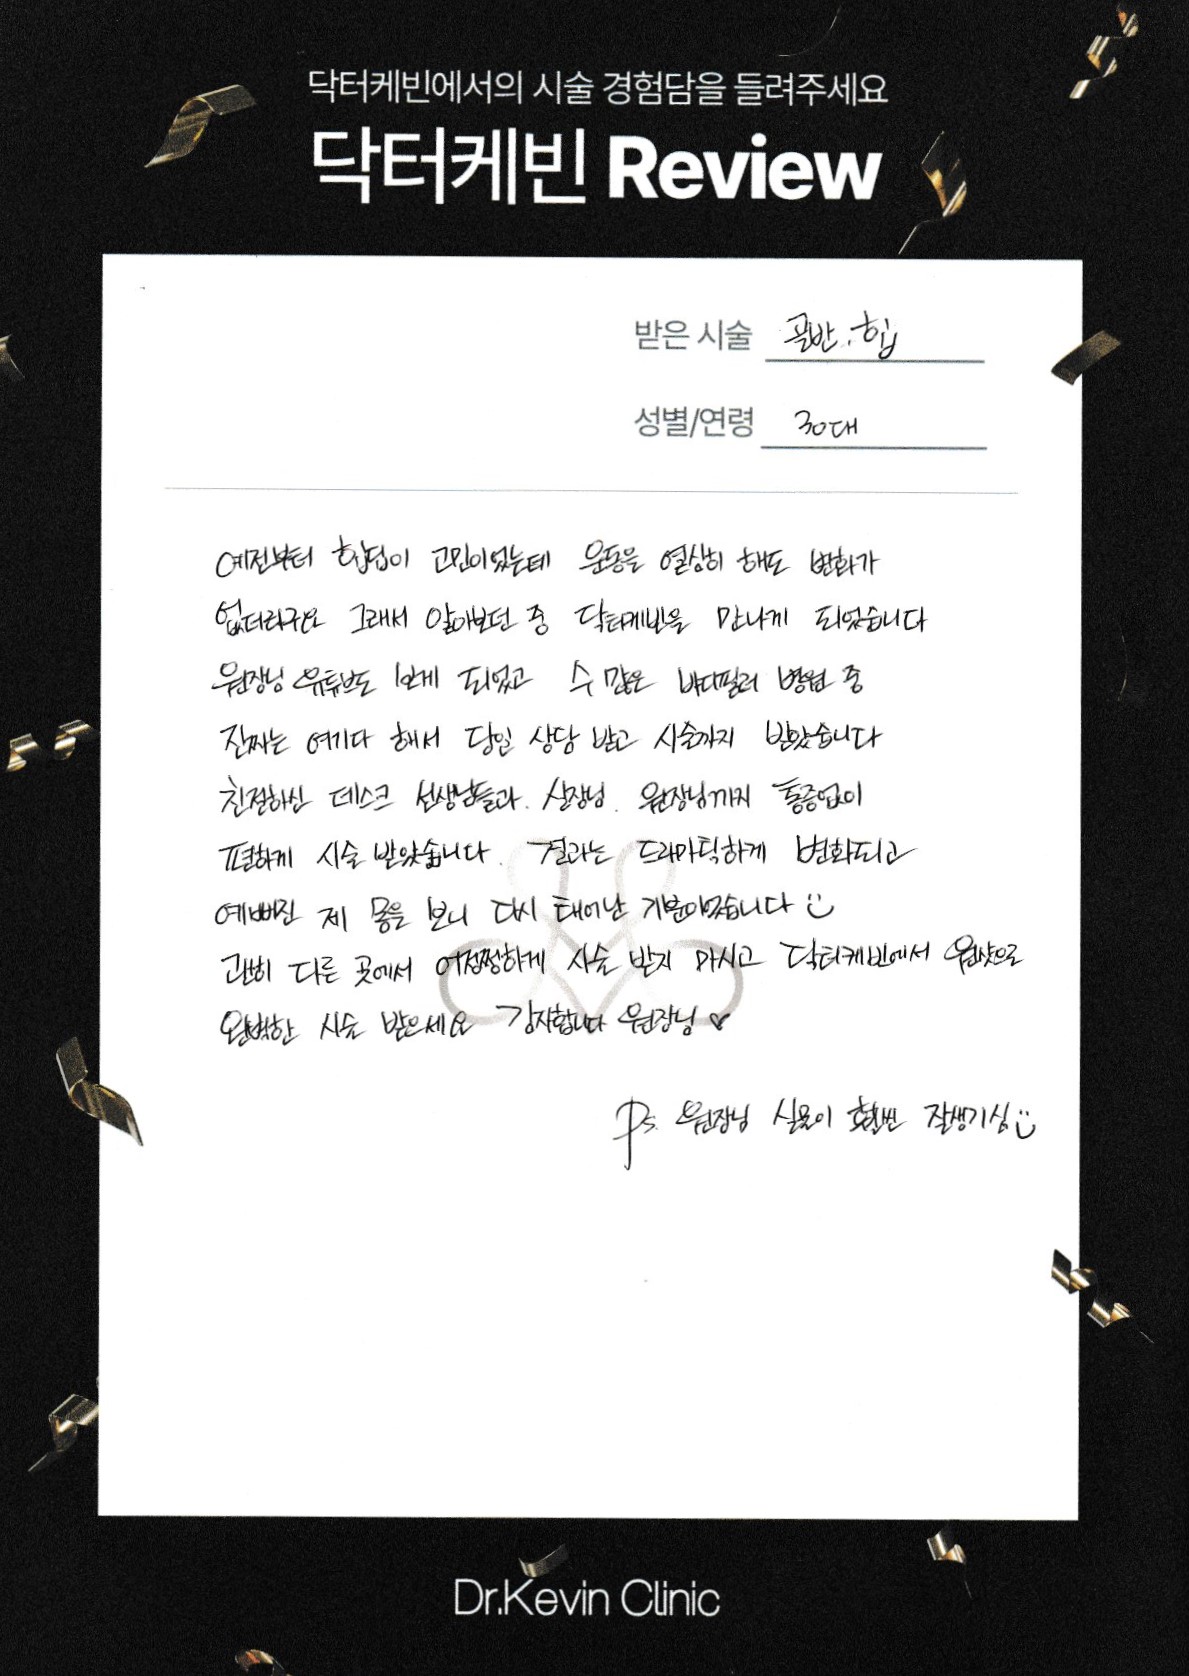 닥터케빈에서의 시술 경험담을 들려주세요
닥터케빈 Review
받은 시술 골반, 힙
성별/연령 30대
예전부터 힙딥이 고민이었는데 운동을 열심히 해도 변화가
없더라구요 그래서 알아보던 중 닥터케빈을 만나게 되었습니다
원장님 유튜브도 보게 되었고 수 많은 바디필러 병원 중
진짜는 여기다 해서 당일 상담 받고 시술까지 받았습니다
친절하신 데스크 선생님들과. 실장님. 원장님까지 통증없이
편하게 시술 받았습니다. 결과는 드라마틱하게 변화되고
예뻐진 제 몸을 보니 다시 태어난 기분이었습니다
괜히 다른 곳에서 어정쩡하게 시술 받지 마시고 닥터케빈에서 원샷으로
완벽한 시술 받으세요 감사합니다 원장님 ♥
Ps. 원장님 실물이 훨씬 잘생기심
Dr.Kevin Clinic